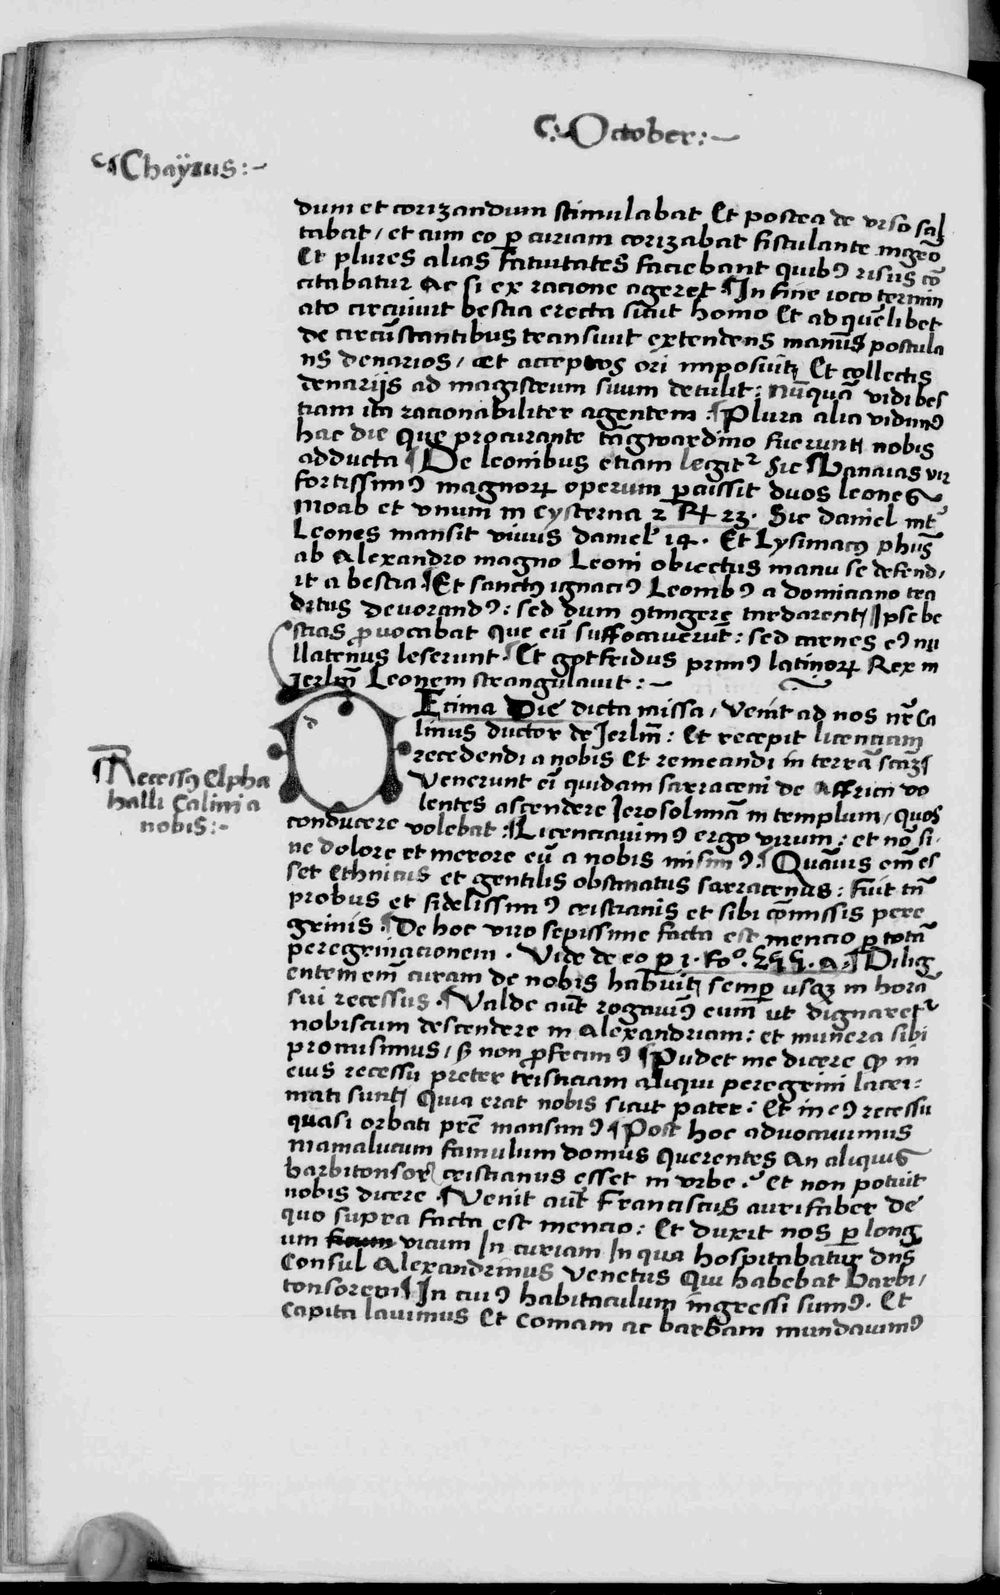 ¶ October :~
¶ Chaÿrus :~
dum et corizandum stimulabat Et postea de urso sal
tabat / et cum eo ꝑ curiam corizabat fistulante mgrō
Et plures alias fatuitates faciebant quibꝰ risus cō
citabatur Ac si ex racione ageret ¶ In fine ioco termin
ato circuiuit bestia erecta sicut homo Et ad quēlibet
de circūstantibus transiuit extendens manus postula
ns denarios / et acceptos ori imposuit Et collectis
denarijs ad magistrum suum detulit : nūquā vidi bes
tiam ita racionabiliter agentem ¶ Plura alia vidimꝰ
hac die Que procurante tāgwardino fuerunt nobis
adducta ¶ De leonibus etiam legitr Sic Banaias vir
fortissimꝰ magnoꝝ operum ꝑcussit duos leones
Moab et vnum in cysterna 2 Rꝝ 23 . Sic daniel int̄
Leones mansit viuus daniel 14 . Et Lysimacꝰ phūs
ab Alexandro magno Leoni obiectus manu se defend,
it a bestia ¶ Et sanctꝰ ignaciꝰ Leonibꝰ a domiciano tra
ditus deuorandꝰ : sed dum ꝯtingere tardarent ¶ Ipse be
stias ꝓuocabat Que eū suffocauerūt : sed carnes eiꝰ nu
llatenus leserunt . Et gotfridus primꝰ latinoꝝ Rex in
Jerlm̄ Leonem strangulauit : ~
d Ecima Die dicta missa / Venit ad nos nr̄ Ca
linus ductor de Jerlm̄ : Et recepit licenciam
recedendi a nobis Et remeandi in terrā scāꝫ
Venerunt eī quidam sarraceni de Affrica vo
lentes ascendere Jerosolimā in templum / Quos
¶ Recessꝰ Elpha
halli Calini a
nobis :~
conducere volebat : ¶ Licenciauimꝰ ergo virum : et nō si
ne dolore et merore eū a nobis misimꝰ . ¶ Quāuis em̄ es
set Ethnicus et gentilis obstinatus sarracenus : fuit tn̄
probus et fidelissimꝰ cristianis et sibi cōmissis pere
grinis . ¶ De hoc viro sepissime facta est mencio ꝑ totā
peregrinacionem . Vide de eo ꝑ 1 . fo . 255 . A . ¶ Dilig
entem em̄ curam de nobis habuit semꝑ usqꝫ in horā
sui recessus . ¶ Valde aūt rogauimꝰ eum ut dignaretr
nobiscum descendere in Alexandriam : et munera sibi
promisimus / sꝫ non ꝓfecimꝰ ¶ Pudet me dicere ꝙ in
eius recessu preter tristiciam aliqui peregrini lacri :
mati sunt Quia erat nobis sicut pater : Et in eiꝰ recessu
quasi orbati pr̄e mansimꝰ ¶ Post hoc aduocauimus
mamalucum famulum domus Querentes An aliquis
barbitonsor cristianus esset in vrbe . Et non potuit
nobis dicere . ¶ Venit aūt Franciscus aurifaber de
quo supra facta est mencio : Et duxit nos ꝑ long
um ficum vicum In curiam In qua hospitabatur dn̄s
Consul Alexandrinus Venetus Qui habebat Barbi /
tonsorem ¶ In cuiꝰ habitaculum ingressi sumꝰ . Et
Capita lauimus Et Comam ac barbam mundauimꝰ